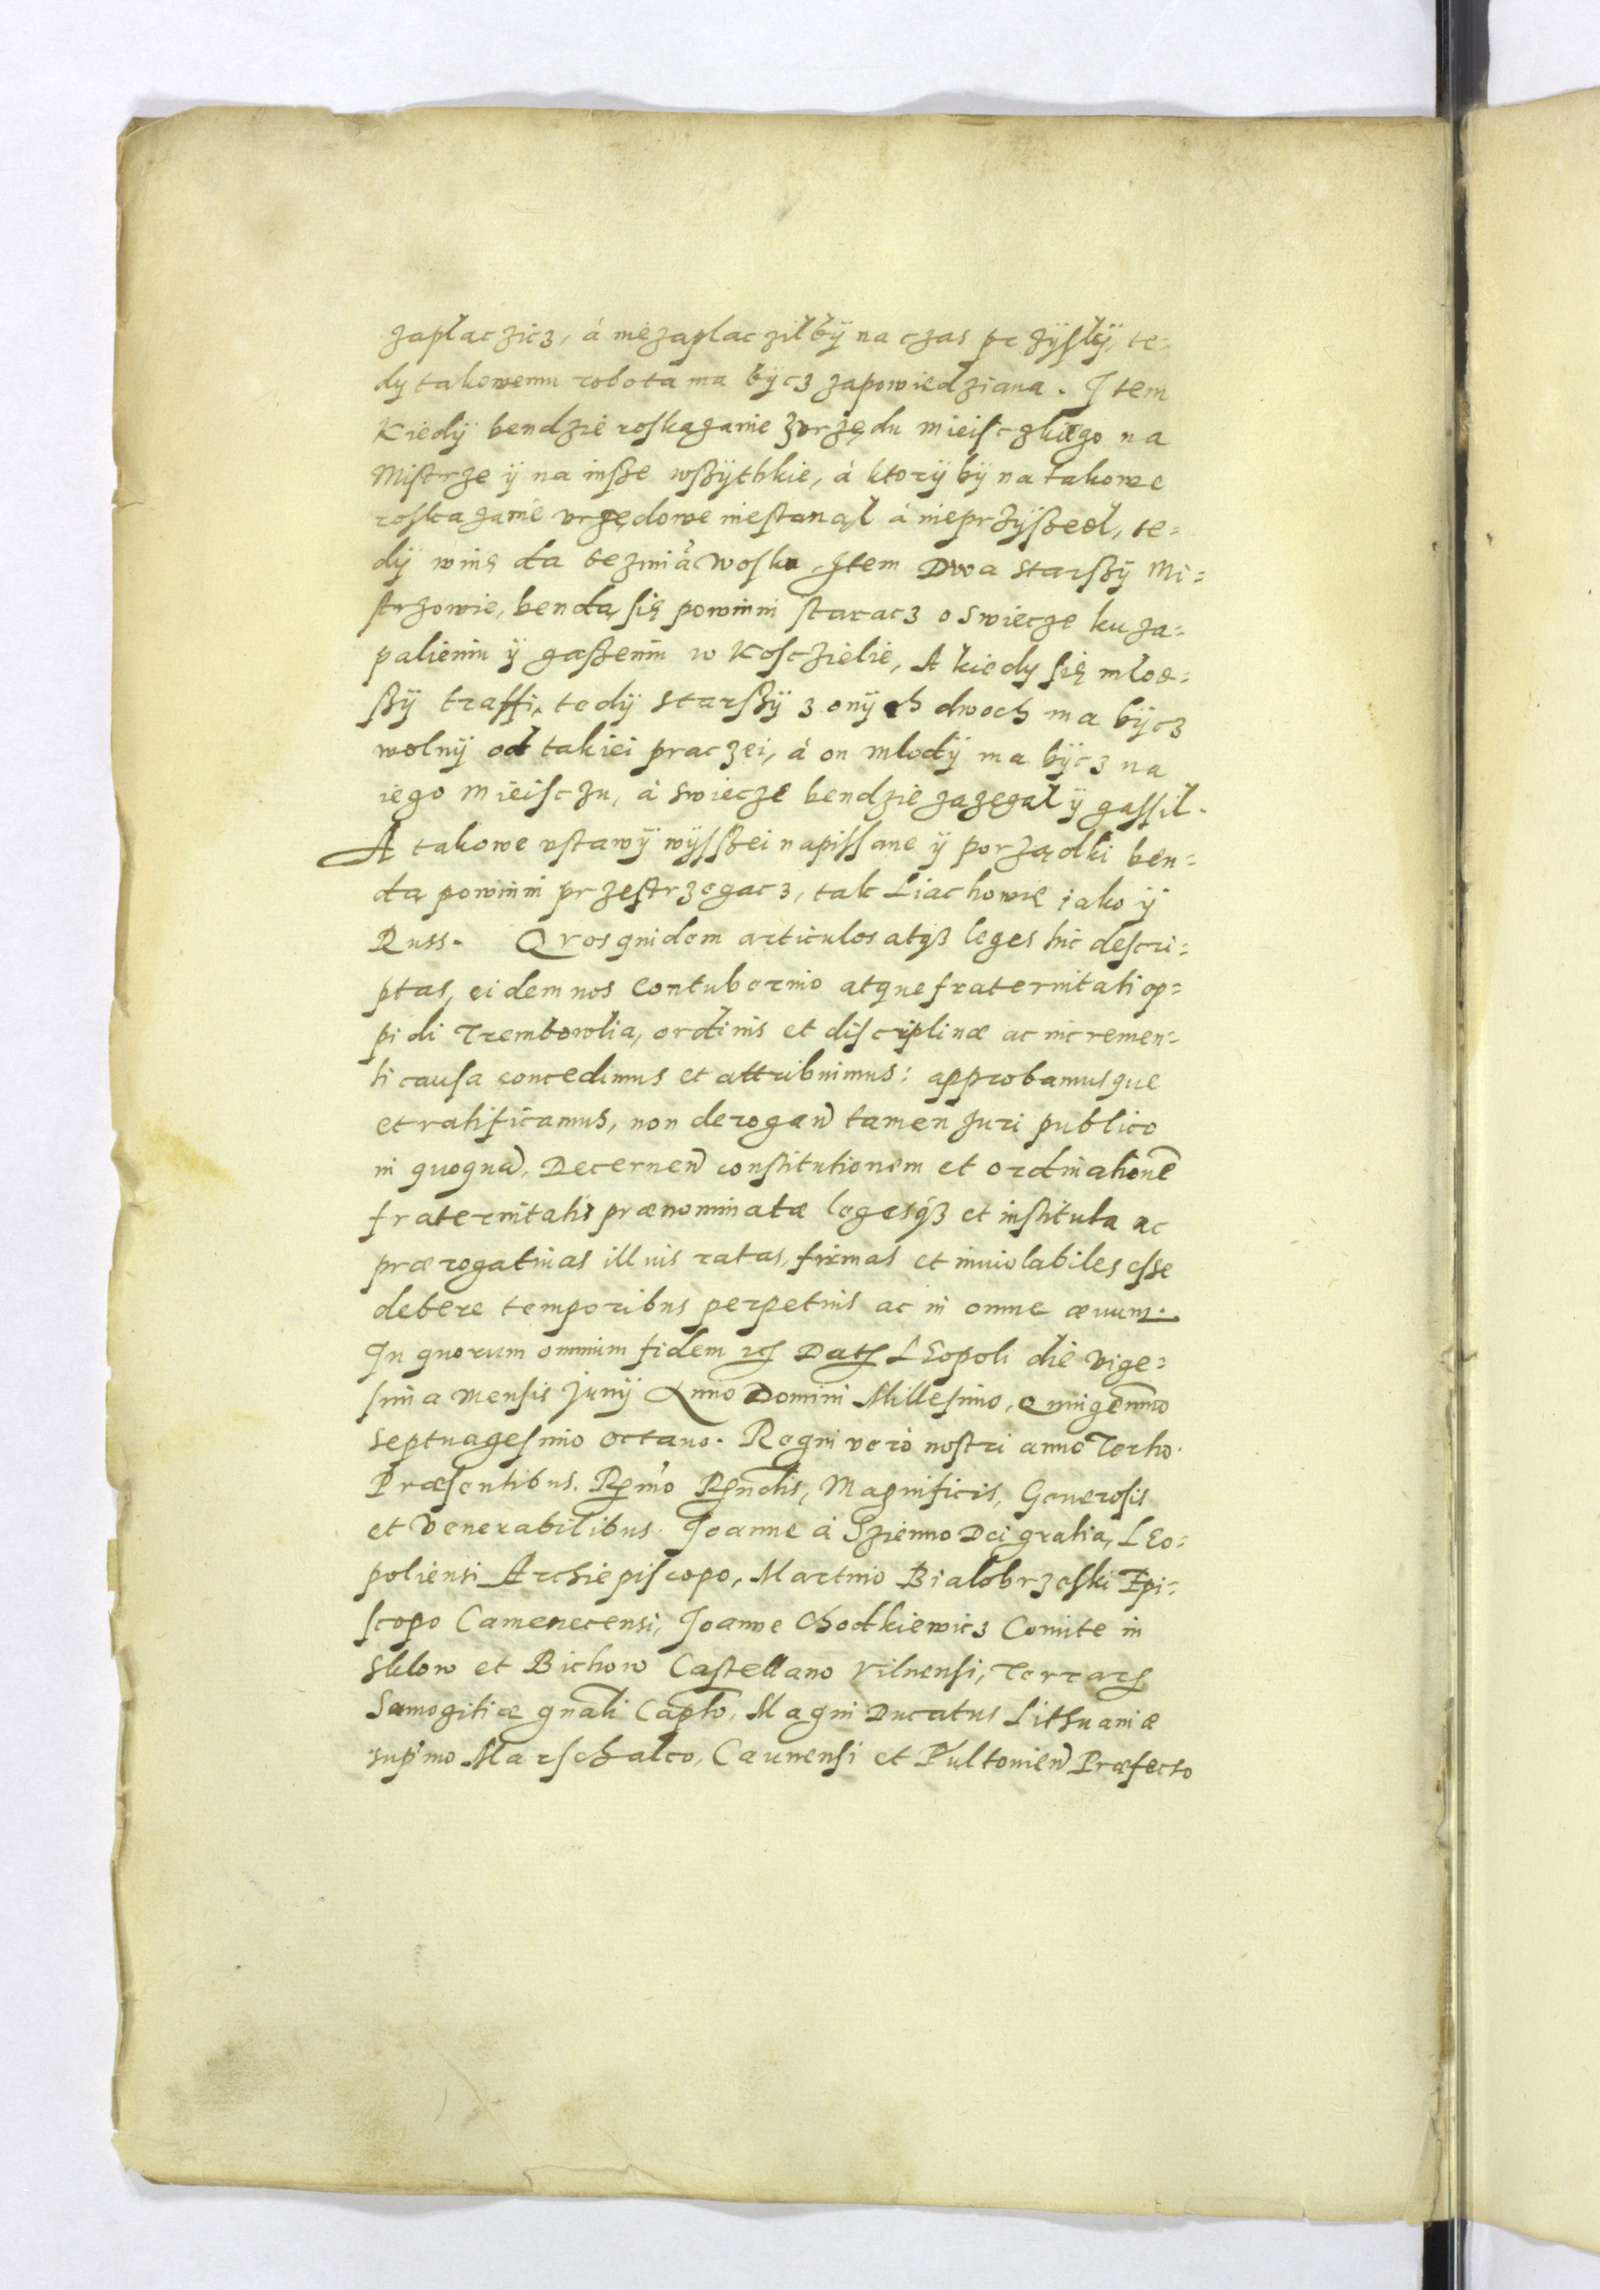 zaplaczicz, á niezaplaczilbÿ na czas przÿslÿ, te=
dy takowemu robota ma bÿcz zapowiedziana. Item
Kiedÿ bendzie roskazanie zvrzędu mieiſczkiego na
Miſtrze ÿ na inſze wſzÿthkie, á ktorÿ bÿ na takowe
roſkazanie vrzędowe nieſtanął á nieprzÿſzedł, te=
dÿ winę da bezmiá woſku, Item Dwa starſzÿ Mi=
ſtrzowie, bendą ſię powinni ſtaracz o swiecze ku za=
palieniu ÿ gaſzeniu w Koſczielie, A kiedy ſię mlod=
ſzÿ traffi, tedÿ starſzÿ z onÿch dwoch ma bÿcz
wolnÿ od takiei praczei, á on mlodÿ ma bÿcz na
iego mieiſczu, á swiecze bendzie zazęgał ÿ gaſſil.
A takowe vſtawÿ wÿſſzei napiſſane ÿ porządki ben=
dą powinni przeſtrzegacz, tak Liachowie iako ÿ
Russ. Qvos quidem articulos atqȝ leges hic deſcri=
ptas, eidem nos contubernio atque fraternitati op=
pidi Trembowlia, ordinis et diſciplinæ ac incremen=
ti cauſa concedimus et attribuimus: approbamusque
et ratificamus, non derogan̄ tamen Juri publico
in quoqua͂, Decernen̄ conſtitutionem et ordinatione͂
fraternitatis prænominatæ legesqȝ et inſtituta ac
prærogatiuas illius ratas, firmas et inuiolabiles eſſe
debere temporibus perpetuis ac in omne æuum.
In quorum omnium fidem rꝭ Datꝭ LEopoli die vige=
ſima menſis Junÿ Anno Domini Milleſimo, Quingen͂mo
septuageſimo octauo. Regni verò noſtri anno Tertio.
Præſentibus. Rm̃o Rndis, Magnificis, Generoſis
et Venerabilibus. Joanne á Szienno Dei gratia, LEo=
polienſi Archiepiſcopo, Martino Bialobrzeſki Epi=
ſcopo Camenecensi, Joanne Chodkiewicz Comite in
Sklow et Bichow Caſtellano Vilnenſi, Terrarꝭ
Samogitiæ gn͂ali Capt͂o, Magni Ducatus Lithuaniæ
sup͂mo Marſchalco, Caunenſi et Pultouien̄ Præfecto